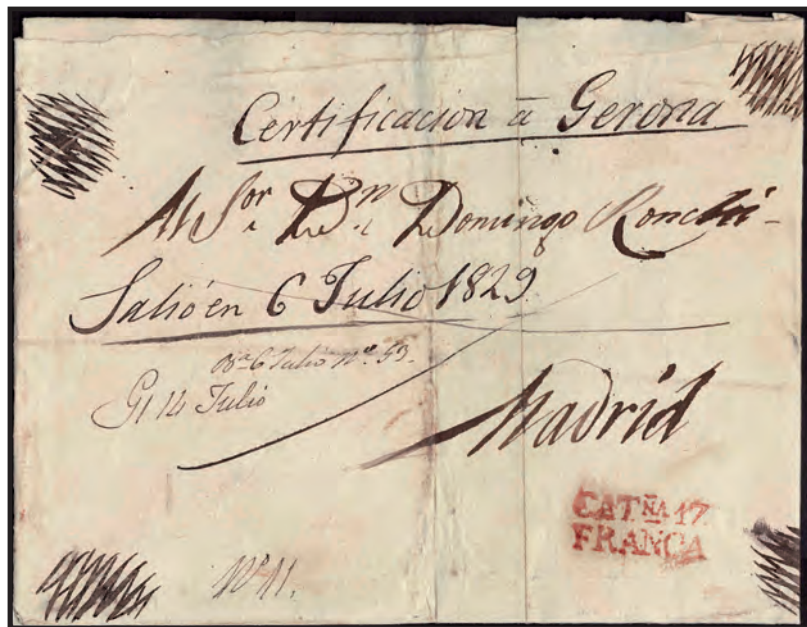 Certificacion â Gerona
Al Sor. Dn. Domingo Ronchi
Salió en 6 Julio 1829
6 Julio No. 59.
Gl 14 Julio
Madrid
CATÑA 17
FRANCA
No 11.